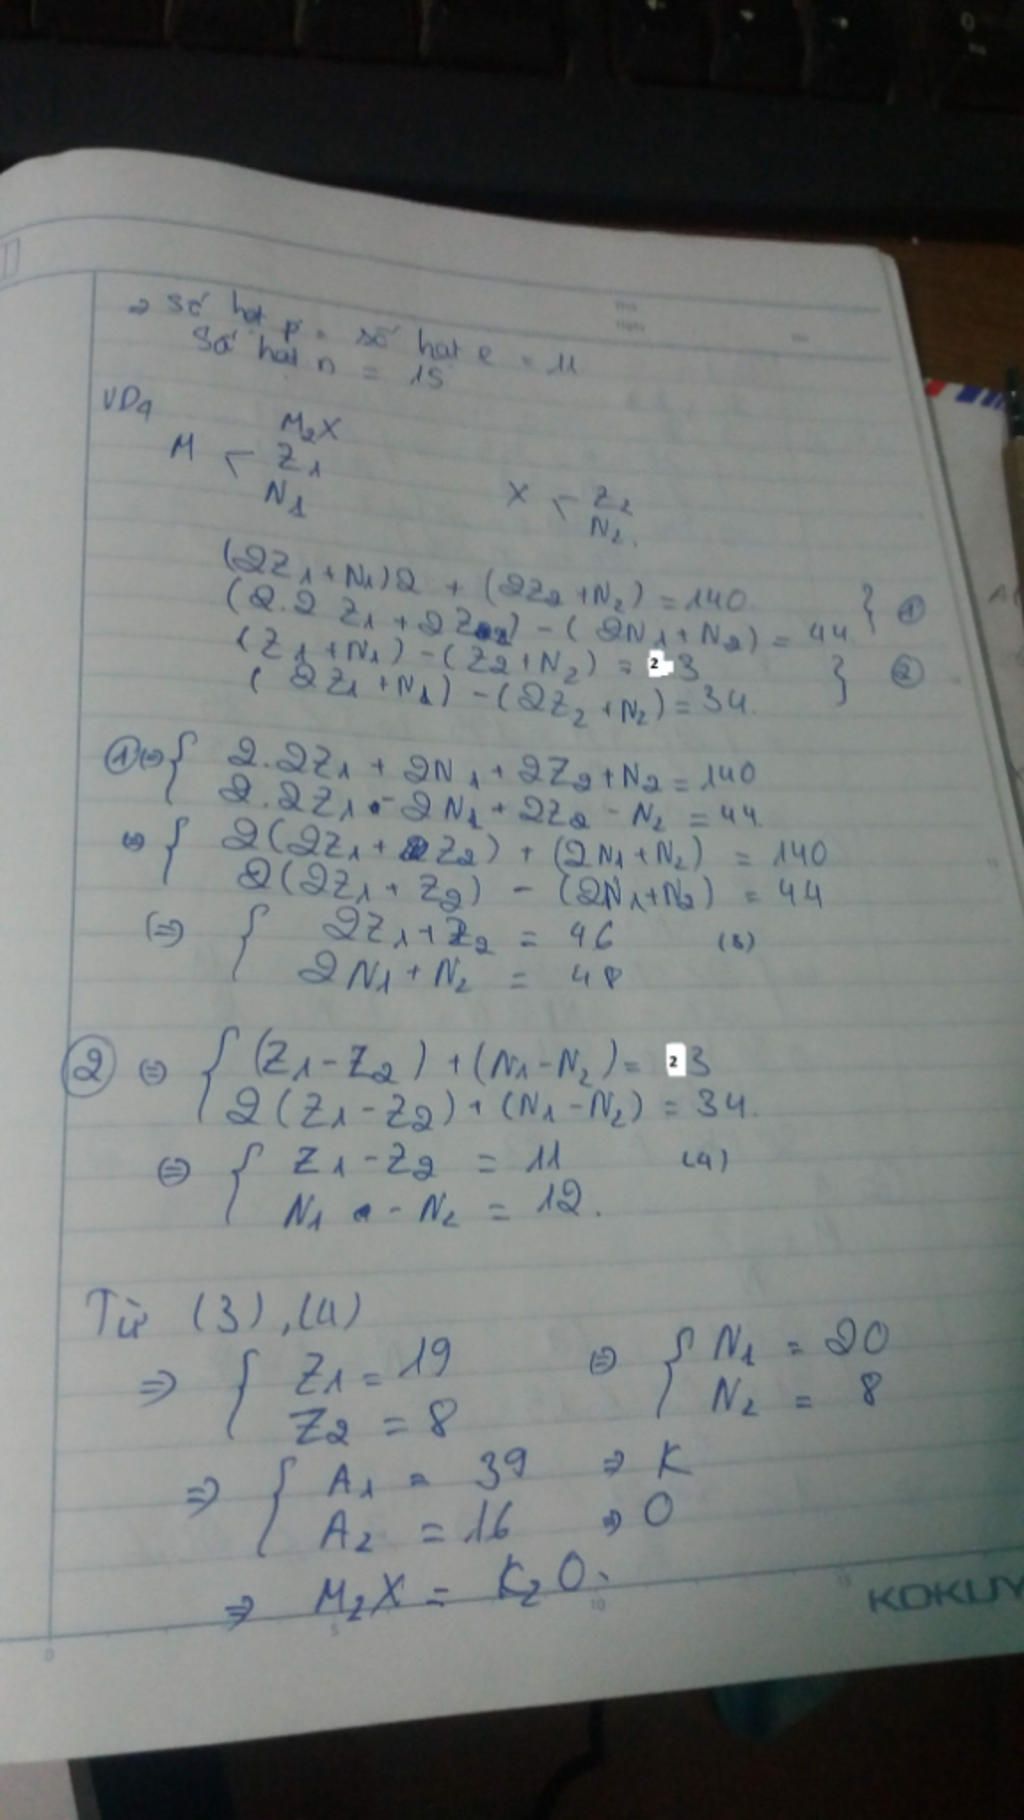 ⇒ Số hạt p = số hạt e = 11
Số hạt n = 15
VD4
M₂X
M < Z₁
N₁
X < Z₂
N₂.
(2Z₁+N₁)2 + (2Z₂+N₂) = 140 } ①
(2.2Z₁ + 2Z₂) - (2N₁+N₂) = 44
(Z₁+N₁) - (Z₂+N₂) = 23 } ②
(2Z₁+N₁) - (2Z₂+N₂) = 34.
① ⇔ { 2.2Z₁ + 2N₁ + 2Z₂ + N₂ = 140
2.2Z₁ - 2N₁ + 2Z₂ - N₂ = 44.
⇔ { 2(2Z₁ + Z₂) + (2N₁+N₂) = 140
2(2Z₁ + Z₂) - (2N₁+N₂) = 44
⇔ { 2Z₁+Z₂ = 46 (3)
2N₁+N₂ = 48
② ⇔ { (Z₁-Z₂) + (N₁-N₂) = 23
2(Z₁-Z₂) + (N₁-N₂) = 34.
⇔ { Z₁-Z₂ = 11 (4)
N₁ - N₂ = 12.
Từ (3),(4)
⇒ { Z₁ = 19 ⇔ { N₁ = 20
Z₂ = 8 N₂ = 8
⇒ { A₁ = 39 ⇒ K
A₂ = 16 ⇒ O
⇒ M₂X = K₂O.
0 5 10 15
KOKUY